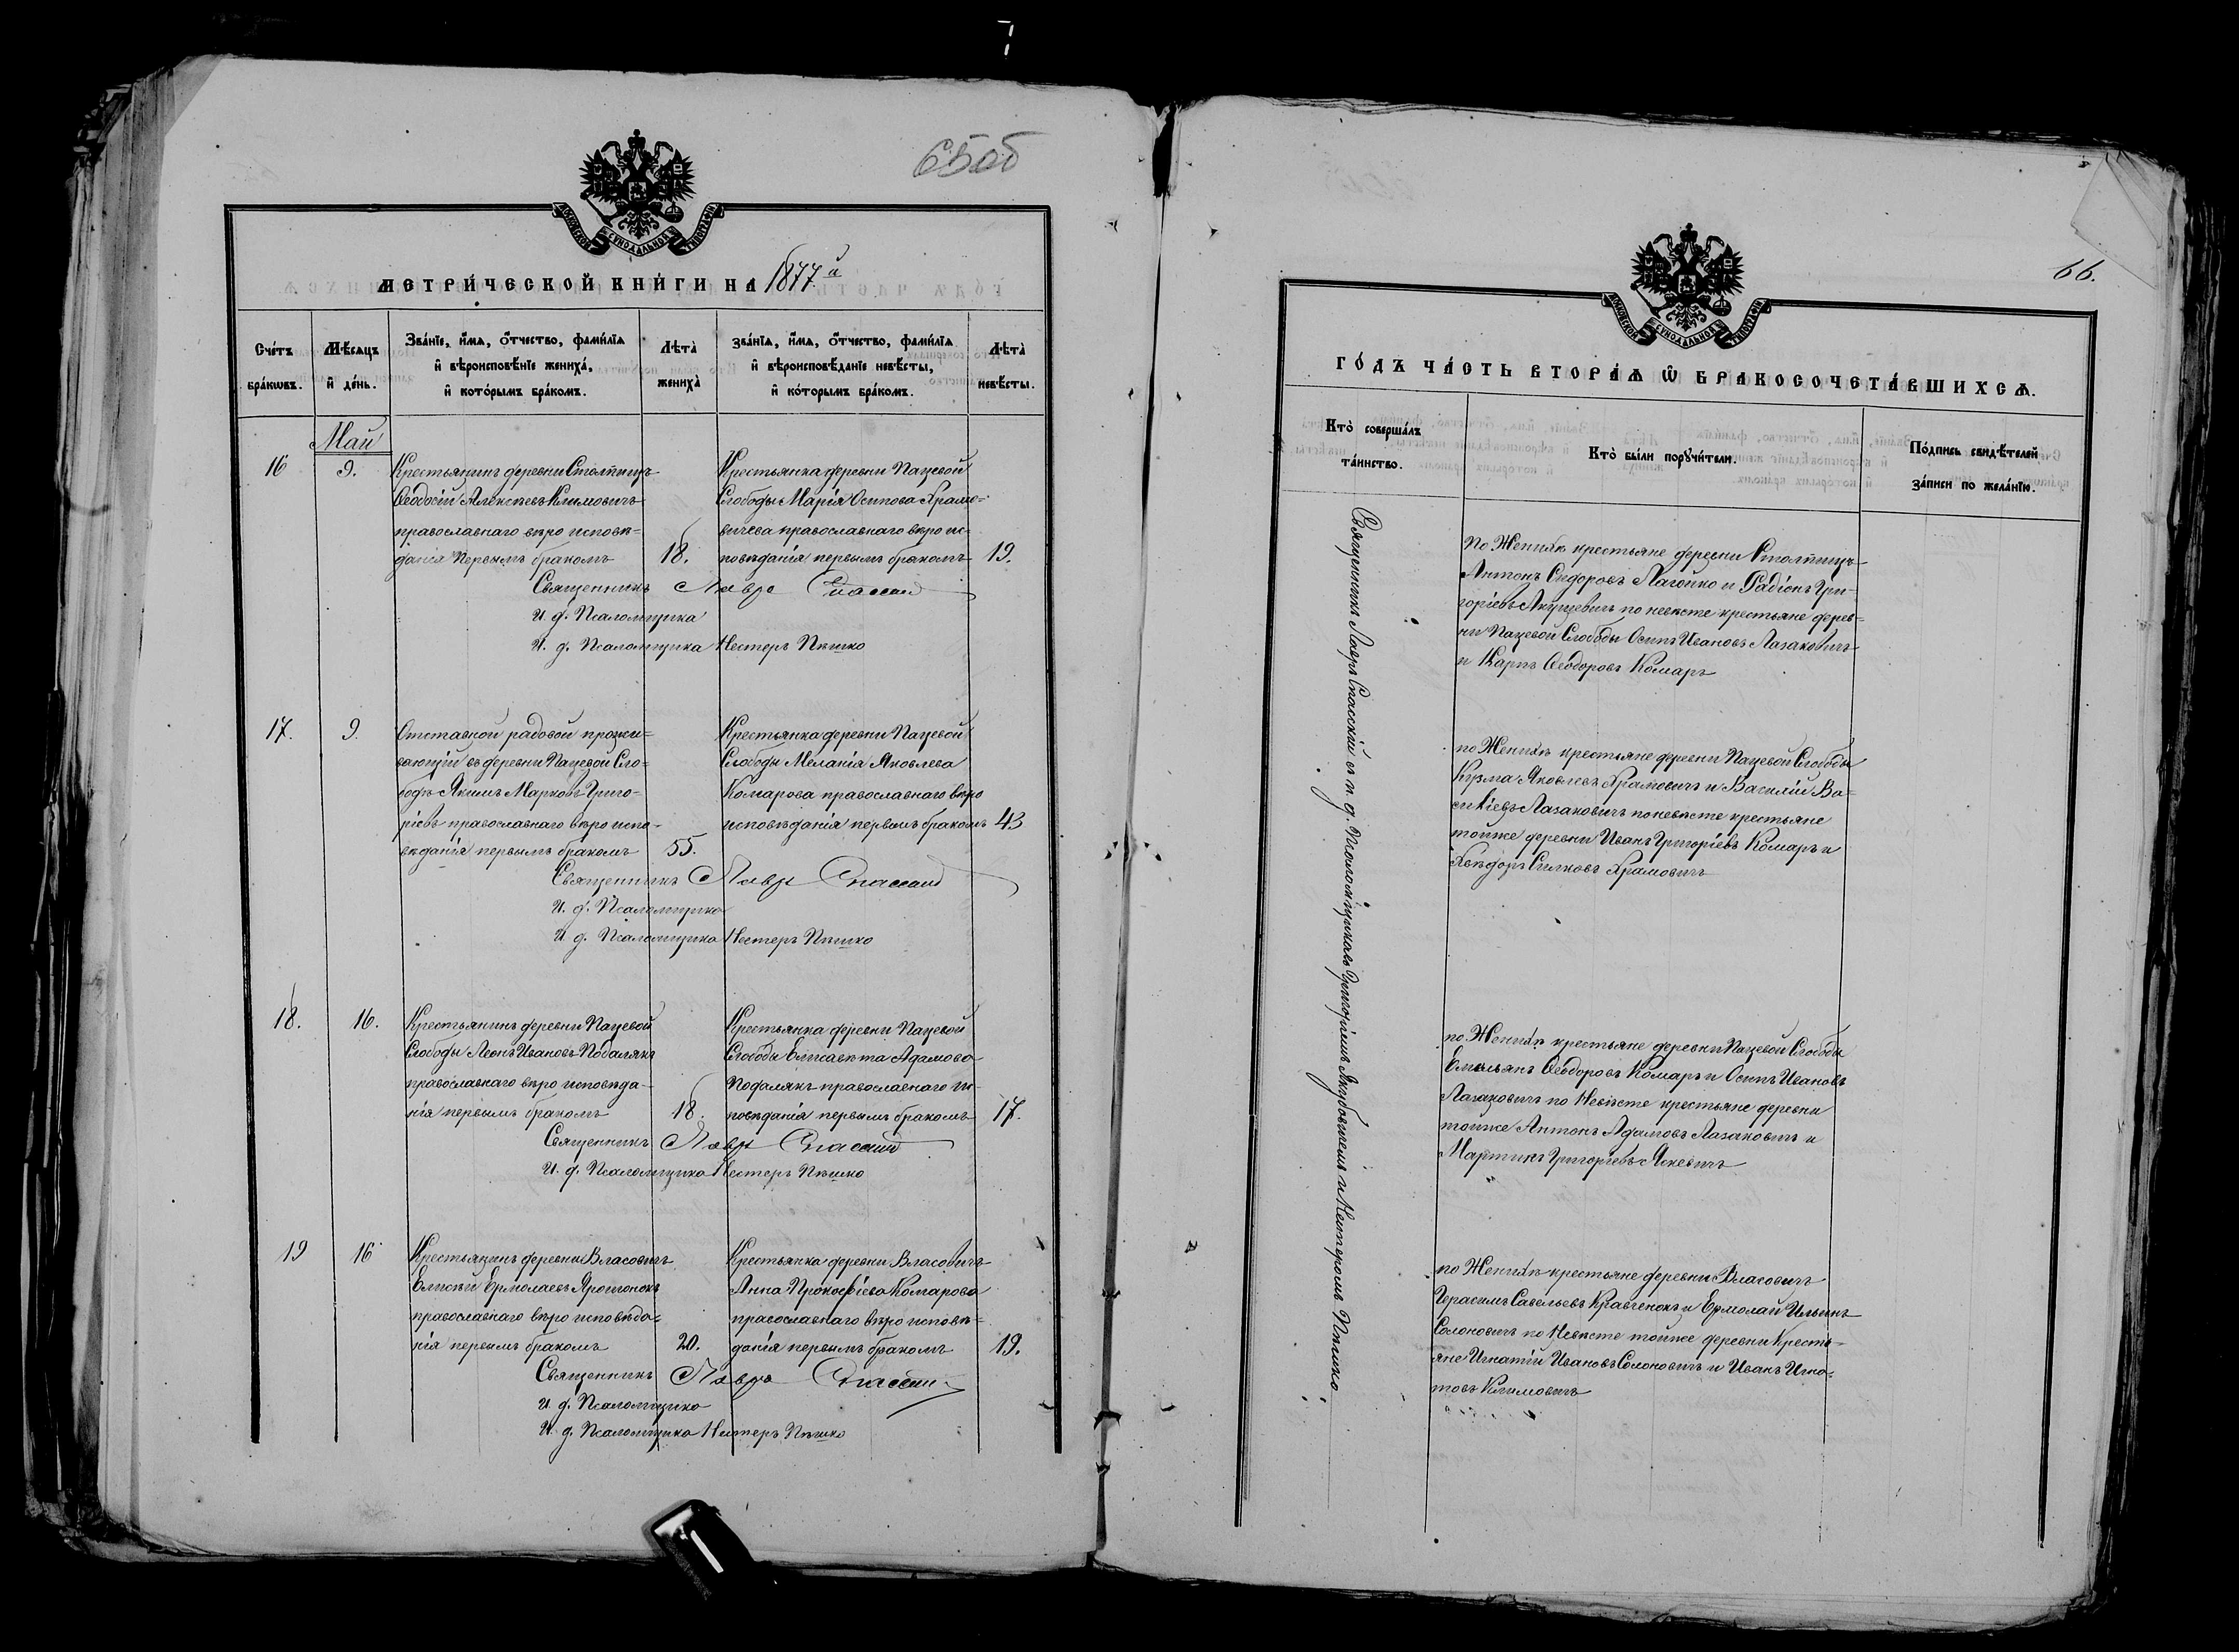 65об
МОСКОВСКОЙ СѴНОДАЛЬНОЙ ТИПОГРАФІИ
МЕТРИ́ЧЕСКОЙ КНИ́ГИ НА 1877й
Сче́тъ бра́кѡвъ.
Мѣ́сяцъ и҆ де́нь.
Зва́нїе, и҆́мѧ, ѻ҆́тчество, фами́лїѧ и҆ вѣроисповѣ́нїе жениха̀, и҆ кото́рымъ бра́комъ.
Лѣ́та̀ жениха̀
зва́нїѧ, и҆́мѧ, ѻ҆́тчество, фами́лїѧ и҆ вѣроисповѣ́данїе невѣ́сты, и҆ кото́рымъ бра́комъ.
Лѣ́та̀ невѣ́сты.
Май
16
9.
Крестьянинъ деревни Столпищъ
Ѳеодосій Алексѣевъ Климовичъ
православнаго вѣро исповѣ=
данія первымъ бракомъ
18.
Крестьянка деревни Пацевой
Слободы Марія Осипова Храмо=
вичева православнаго вѣро ис=
повѣданія первымъ бракомъ
19.
Священникъ Лавръ Спасскій
И. д. Псаломщика
И. д. Псаломщика Нестеръ Пѣшко
17.
9.
Отставной рядовой прожи=
вающій въ деревни Пацевой Сло=
бодѣ Якимъ Марковъ Григо=
ріевъ православнаго вѣро испо=
вѣданія первымъ бракомъ
55.
Крестьянка деревни Пацевой
Слободы Меланія Яковлева
Комарова православнаго вѣро
исповѣданія первымъ бракомъ
43
Священникъ Лавръ Спасскій
И. д. Псаломщика
И. д. Псаломщика Нестеръ Пѣшко
18.
16.
Крестьянинъ деревни Пацевой
Слободы Леонъ Ивановъ Подалякъ
православнаго вѣро исповѣда=
нія первымъ бракомъ
18.
Крестьянка деревни Пацевой
Слободы Елисавета Адамова
Подалякъ православнаго ис=
повѣданія первымъ бракомъ
17.
Священникъ Лавръ Спасскій
И. д. Псаломщика Нестеръ Пѣшко
19
16
Крестьянинъ деревни Власовичъ
Елисѣй Ермолаевъ
православнаго вѣро исповѣда=
нія первымъ бракомъ
20.
Крестьянка деревни Власовичъ
Анна Прокофіева Комарова
православнаго вѣро исповѣ=
данія первымъ бракомъ
19.
Священникъ Лавръ Спасскій
И. д. Псаломщика
И. д. Псаломщика Нестеръ Пѣшко
66.
МОСКОВСКОЙ СѴНОДАЛЬНОЙ ТИПОГРАФІИ
ГО́ДЪ ЧА́СТЬ ВТОРА́Ѧ Ѽ БРАКОСОЧЕТА́ВШИХСѦ.
Кто̀ соверша́лъ та́инство.
Кто̀ бы́ли порꙋчи́тели.
По́дпись свидѣ́телей за́писи по жела́нїю.
Священникъ Лавръ Спасскій съ и. д. псаломщикамъ Григоріемъ Якубовичемъ и Нестеромъ Пѣшко
По Женихѣ крестьяне деревни Столпищъ
Антонъ Сидоровъ Лагойко и Радіонъ Гри=
горіевъ Якущевичъ по невѣсте крестьяне дерев=
ни Пацевой Слободы Осипъ Ивановъ Лазаковичъ
и Карпъ Ѳеодоровъ Комаръ
по Женихѣ крестьяне деревни Пацевой Слободы
Кузма Яковлевъ Храмовичъ и Василій Ва=
силіевъ Лазаковичъ по невѣсте крестьяне
тойже деревни Иванъ Григоріевъ Комаръ и
Силковъ Храмовичъ
по Женихѣ крестьяне деревни Пацевой Слободы
Емельянъ Ѳеодоровъ Комаръ и Осипъ Ивановъ
Лазаковичъ по Невѣсте крестьяне деревни
тойже Антонъ Адамовъ Лазаковичъ и
Мартинъ Григоріевъ Яскевичъ
по Женихѣ крестьяне деревни Власовичъ
Герасимъ Савельевъ Кравченокъ и Ермолай Ильинъ
Солоновичъ по Невѣсте тойже деревни Кресть=
яне Игнатій Ивановъ Солоновичъ и Иванъ Игна=
товъ Климовичъ